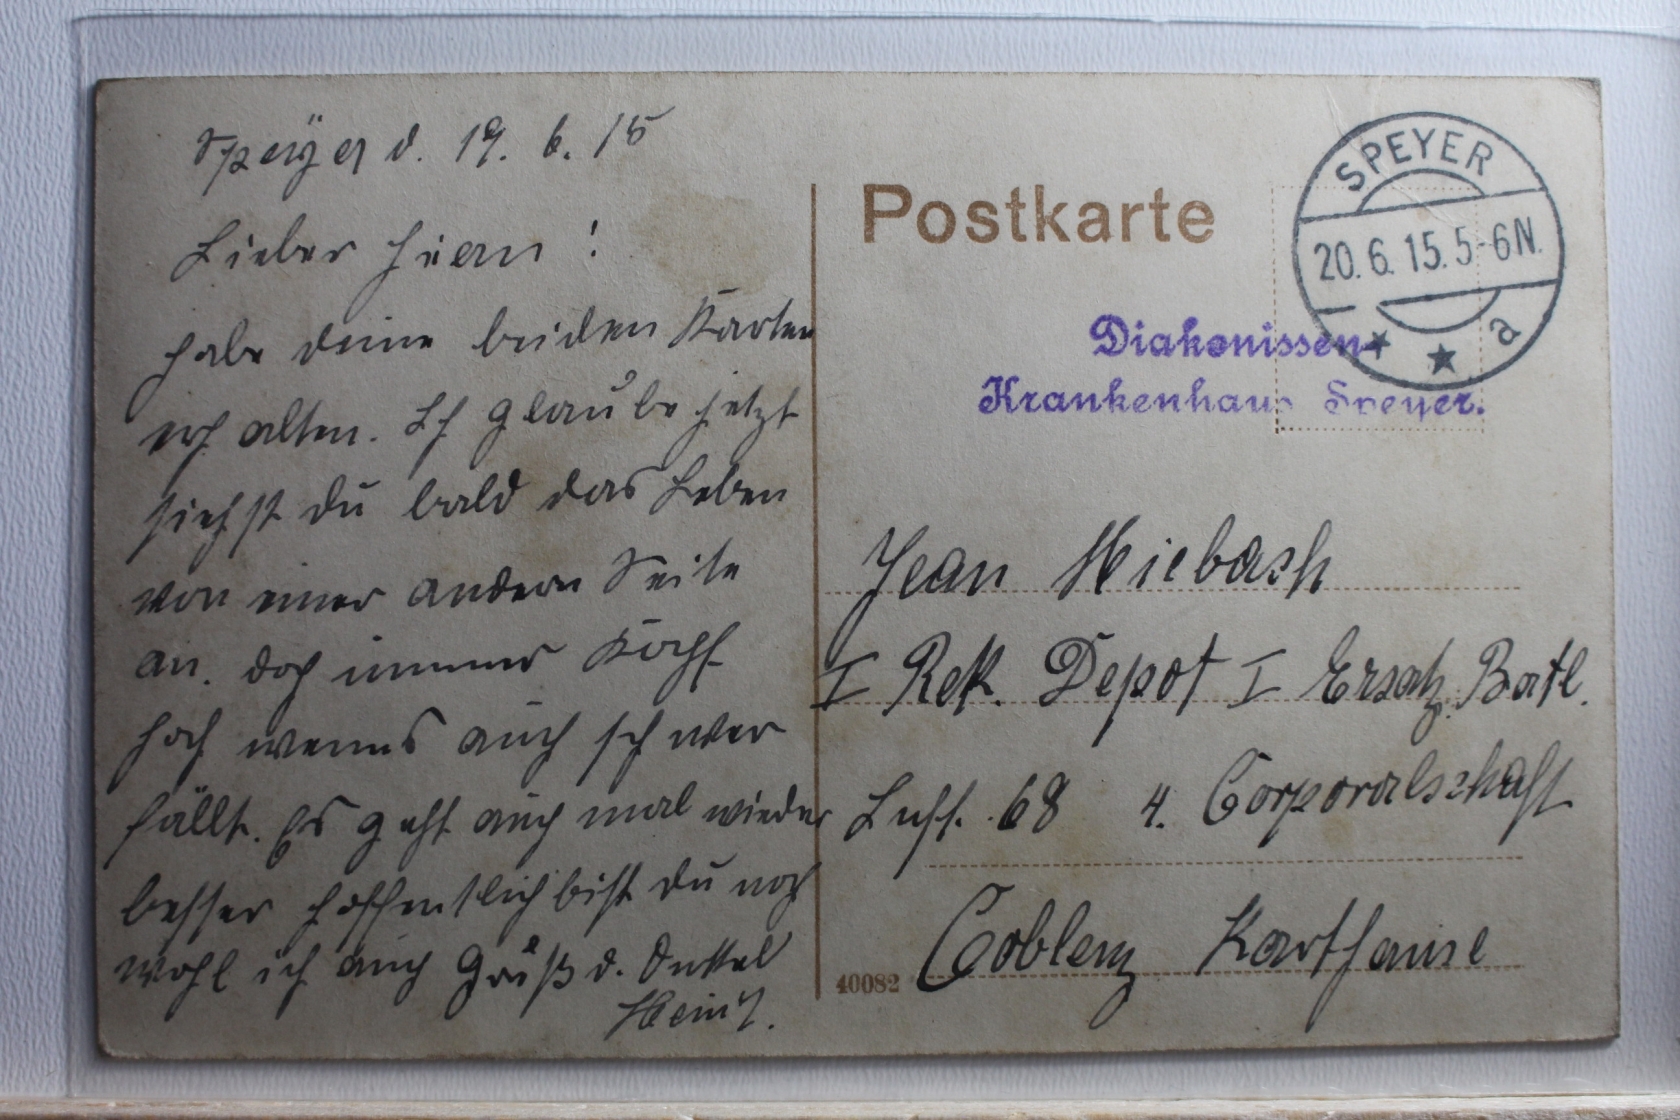 Speÿer d. 19. 6. 15
Lieber
habe deine beiden Karten
erhalten. Ich glaube jetzt
siehst du bald das Leben
von einer andern Seite
an. doch immer Kopf
hoch wenns auch schwer
fällt. Es geht auch mal wieder
besser hoffentlich bist du noch
wohl ich auch Gruß d. Onkel
Heinr.
Postkarte
SPEYER
20. 6. 15. 5-6 N.
a
Diakonissen-
Krankenhaus Speyer.
Jean Miebach
I Rek. Depot I Ersatz. Batl.
68 4. Corporalschaft
Coblenz Karthause
40082